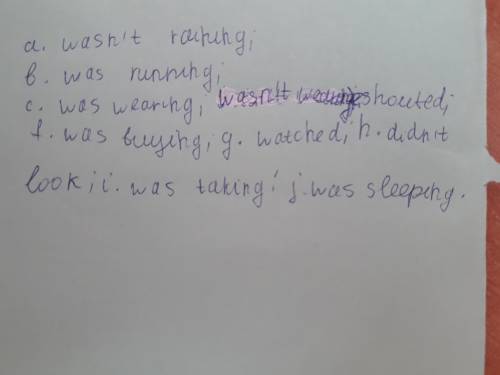 a. wasn't raining;
b. was running;
c. was wearing; wasn't shouted;
f. was buying; g. watched; h. didn't
look; i. was taking; j. was sleeping.